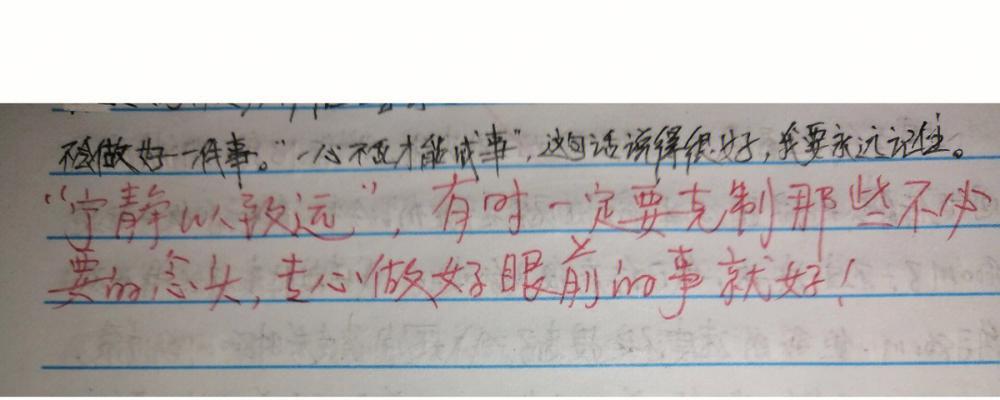 不会做好一件事。"一心不乱才能成事",这句话讲得很好,我要永远记住。
"宁静以致远",有时一定要克制那些不必
要的念头,专心做好眼前的事就好!